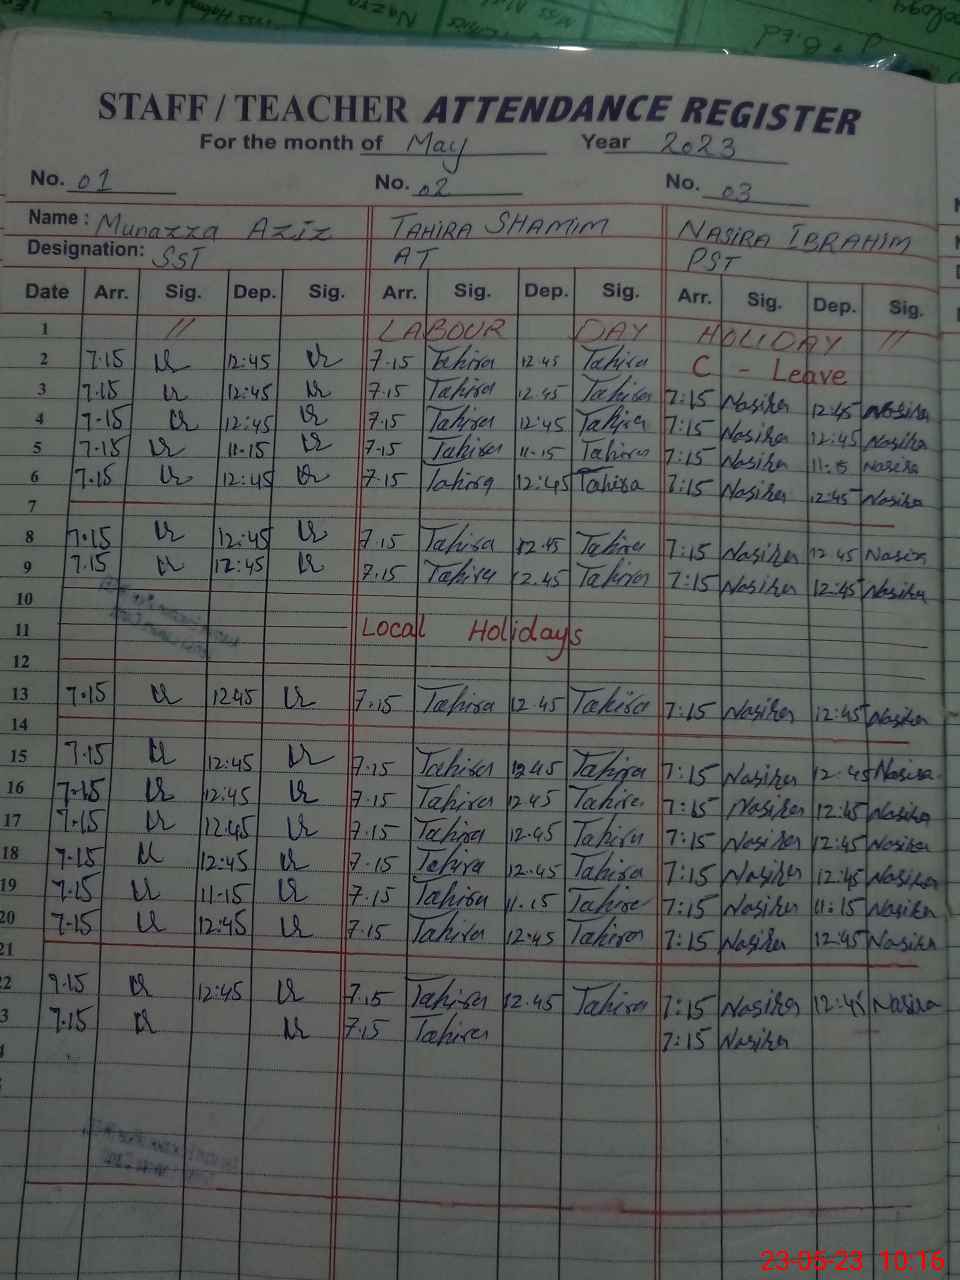 STAFF / TEACHER ATTENDANCE REGISTER
For the month of May Year 2023
No. 01 No. 02 No. 03
Name : Munazza Aziz TAHIRA SHAMIM NASIRA IBRAHIM
Designation: SST AT PST
Date Arr. Sig. Dep. Sig. Arr. Sig. Dep. Sig. Arr. Sig. Dep. Sig.
1 // LABOUR DAY HOLIDAY //
2 7.15 12:45 7.15 Tahira 12.45 Tahira C - Leave
3 7.15 12:45 7.15 Tahira 12.45 Tahira 7:15 Nasira 12:45 Nasira
4 7.15 12:45 7.15 Tahira 12:45 Tahira 7:15 Nasira 12:45 Nasira
5 7.15 11.15 7.15 Tahira 11.15 Tahira 7:15 Nasira 11.15 Nasira
6 7.15 12:45 7.15 Tahira 12:45 Tahira 7:15 Nasira 12:45 Nasira
7
8 7.15 12:45 7.15 Tahira 12.45 Tahira 7:15 Nasira 12.45 Nasira
9 7.15 12:45 7.15 Tahira 12.45 Tahira 7:15 Nasira 12:45 Nasira
10
11 Local Holidays
12
13 7.15 1245 7.15 Tahira 12.45 Tahira 7:15 Nasira 12:45 Nasira
14
15 7.15 12:45 7.15 Tahira 1245 Tahira 7:15 Nasira 12:45 Nasira
16 7.15 12:45 7.15 Tahira 12.45 Tahira 7:15 Nasira 12:45 Nasira
17 7.15 12.45 7.15 Tahira 12.45 Tahira 7:15 Nasira 12:45 Nasira
18 7.15 12:45 7.15 Tahira 12.45 Tahira 7:15 Nasira 12:45 Nasira
19 7.15 11.15 7.15 Tahira 11.15 Tahira 7:15 Nasira 11:15 Nasira
20 7.15 12:45 7.15 Tahira 12:45 Tahira 7:15 Nasira 12:45 Nasira
21
2 7.15 12:45 7.15 Tahira 12.45 Tahira 7:15 Nasira 12:45 Nasira
3 7.15 7.15 Tahira 7:15 Nasira
23-05-23 10:16